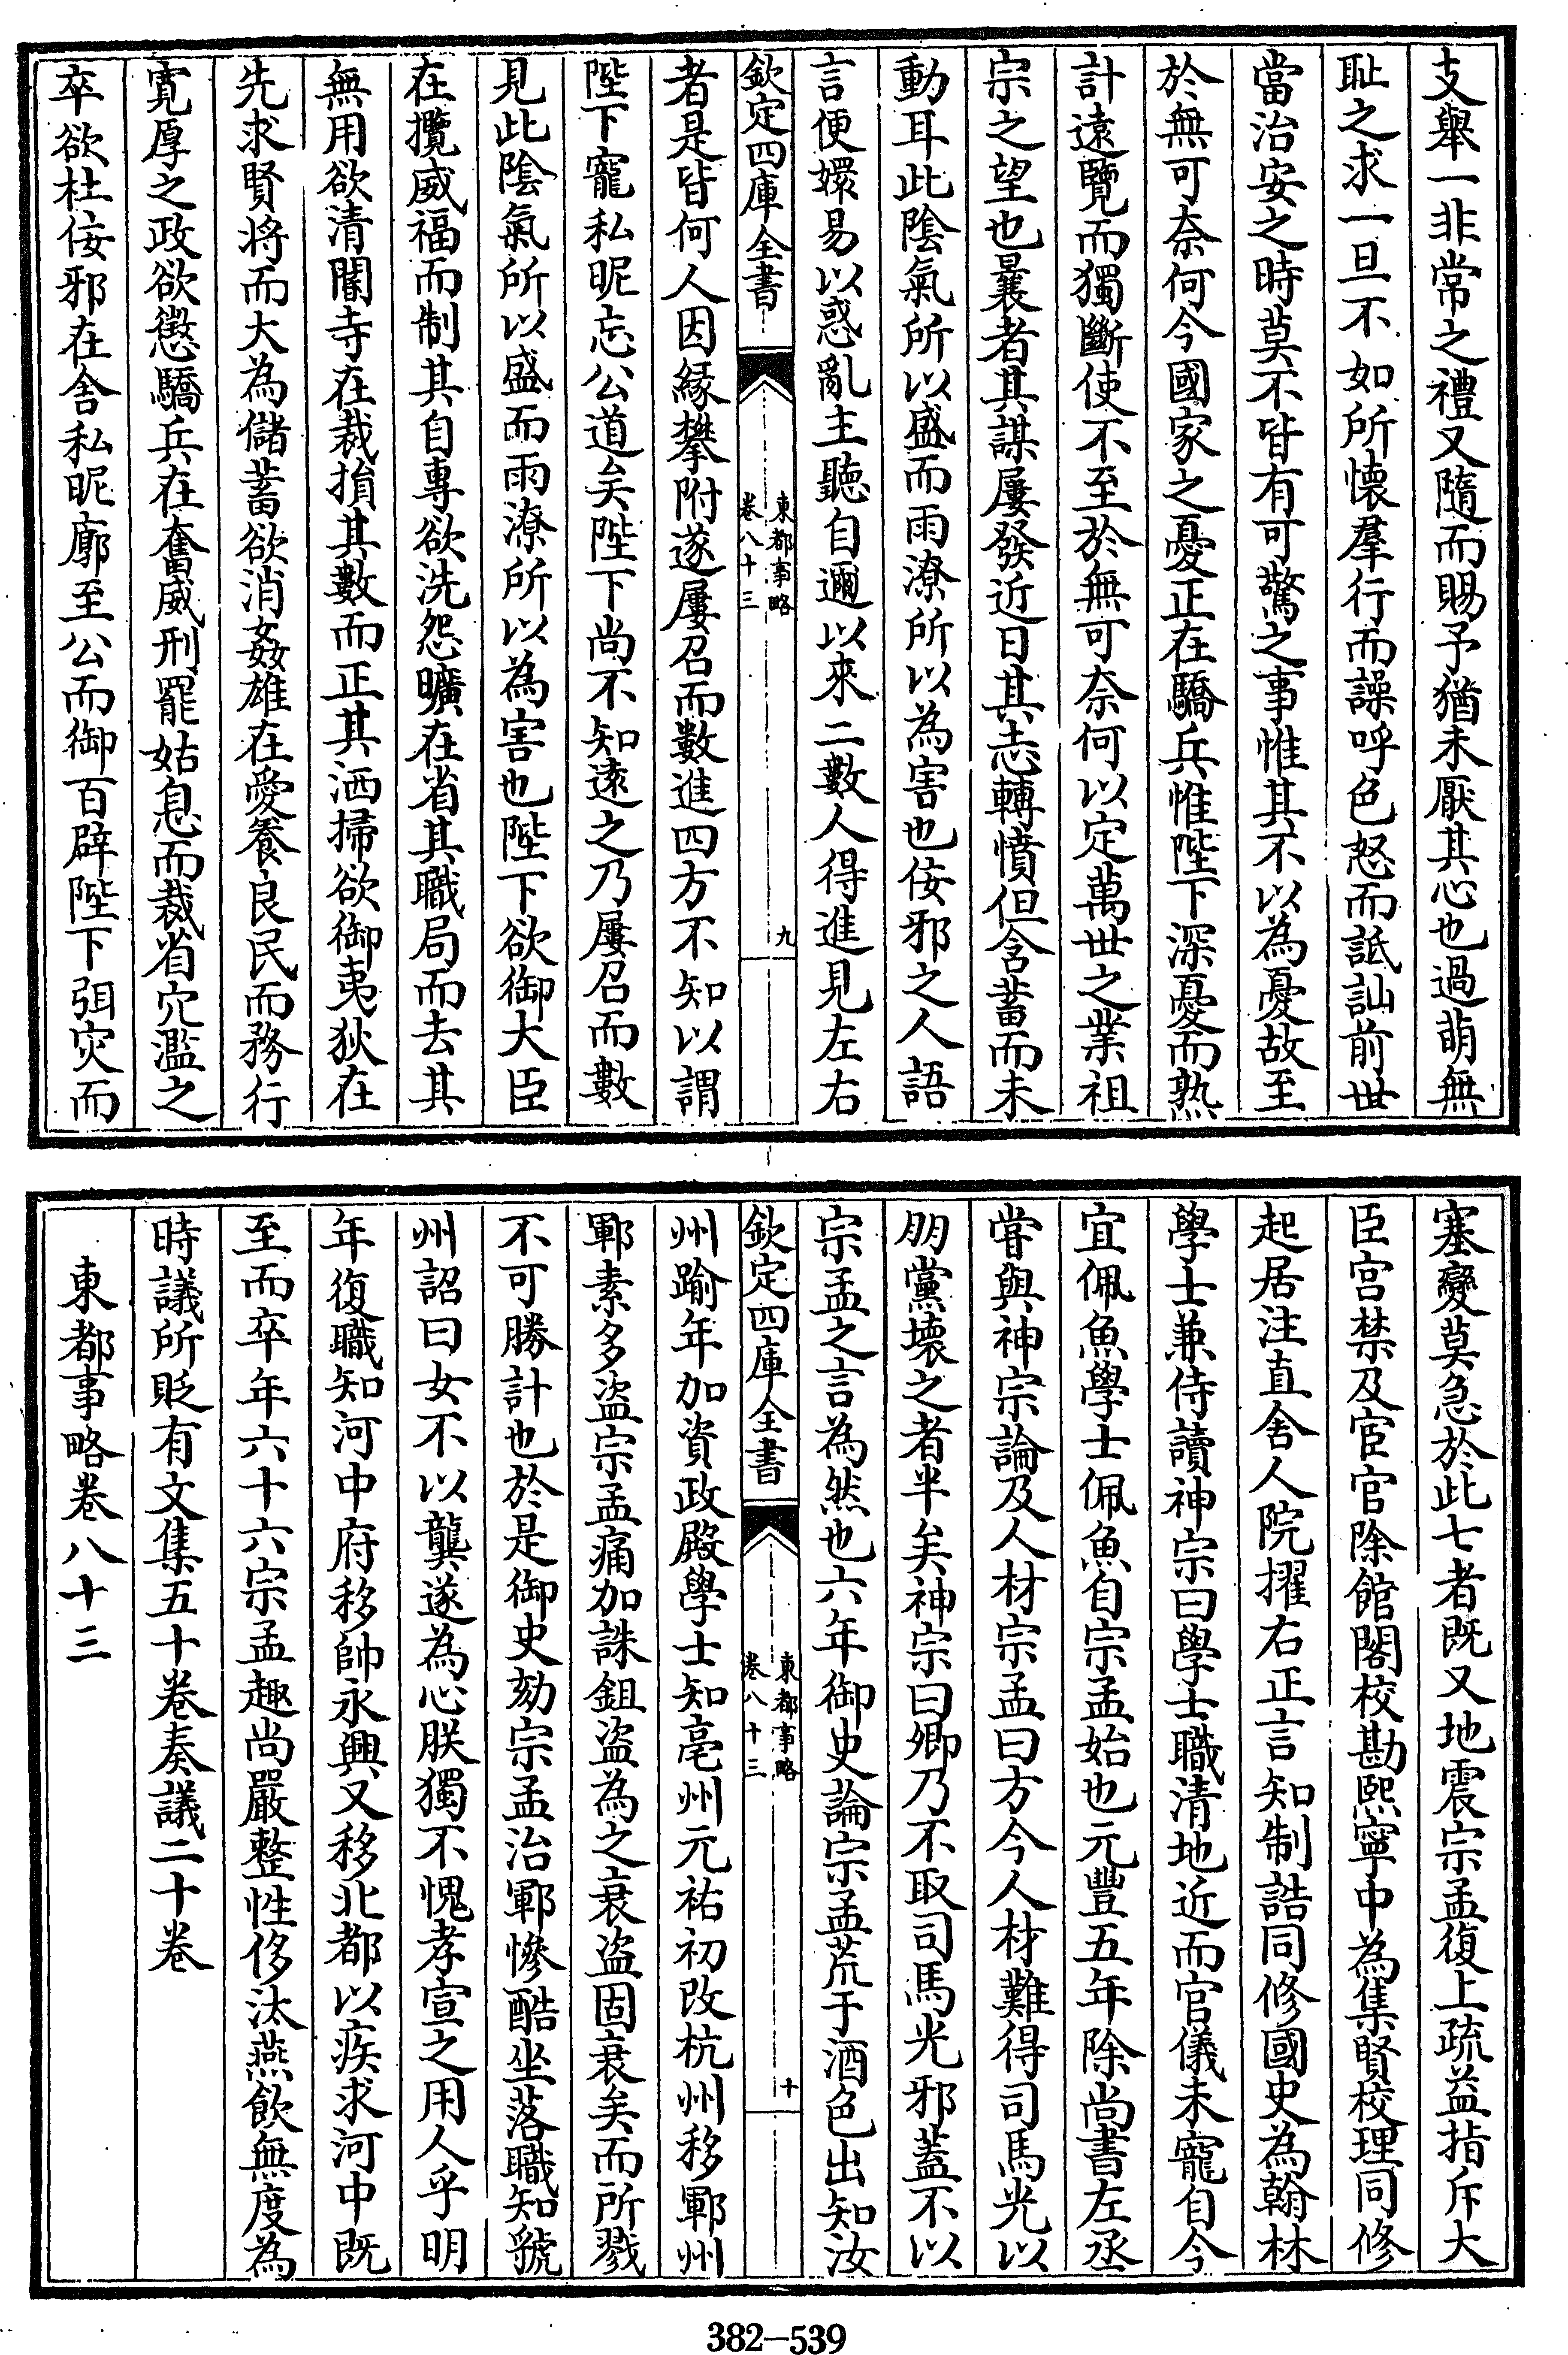 支舉一非常之禮又隨而賜予猶未厭其心也過萌無
耻之求一旦不如所懷羣行而譟呼色怒而詆訕前世
當治安之時莫不皆有可驚之事惟其不以為憂故至
於無可奈何今國家之憂正在驕兵惟陛下深憂而熟
計遠覽而獨斷使不至於無可奈何以定萬世之業祖
宗之望也曩者其謀屢發近日其志轉憤但含蓄而未
動耳此陰氣所以盛而雨潦所以為害也佞邪之人語
言便嬛易以惑亂主聽自邇以來二數人得進見左右
欽定四庫全書
東都事略
卷八十三
九
者是皆何人因緣攀附遂屢召而數進四方不知以謂
陛下寵私昵忘公道矣陛下尚不知遠之乃屢召而數
見此陰氣所以盛而雨潦所以為害也陛下欲御大臣
在攬威福而制其自專欲洗怨曠在省其職局而去其
無用欲清閽寺在裁損其數而正其洒掃欲御夷狄在
先求賢將而大為儲蓄欲消姦雄在愛養良民而務行
寬厚之政欲懲驕兵在奮威刑罷姑息而裁省冗濫之
卒欲杜佞邪在舍私昵廓至公而御百辟陛下弭灾而
塞變莫急於此七者既又地震宗孟復上疏益指斥大
臣宫禁及宦官除館閣校勘熙寧中為集賢校理同修
起居注直舍人院擢右正言知制誥同修國史為翰林
學士兼侍讀神宗曰學士職清地近而官儀未寵自今
宜佩魚學士佩魚自宗孟始也元豐五年除尚書左丞
嘗與神宗論及人材宗孟曰方今人材難得司馬光以
朋黨壞之者半矣神宗曰卿乃不取司馬光邪蓋不以
宗孟之言為然也六年御史論宗孟荒于酒色出知汝
欽定四庫全書
東都事略
卷八十三
十
州踰年加資政殿學士知亳州元祐初改杭州移鄆州
鄆素多盜宗孟痛加誅鉏盜為之衰盜固衰矣而所戮
不可勝計也於是御史劾宗孟治鄆慘酷坐落職知虢
州詔曰女不以龔遂為心朕獨不愧孝宣之用人乎明
年復職知河中府移帥永興又移北都以疾求河中既
至而卒年六十六宗孟趣尚嚴整性侈汰燕飲無度為
時議所貶有文集五十卷奏議二十卷
東都事略卷八十三
382—539